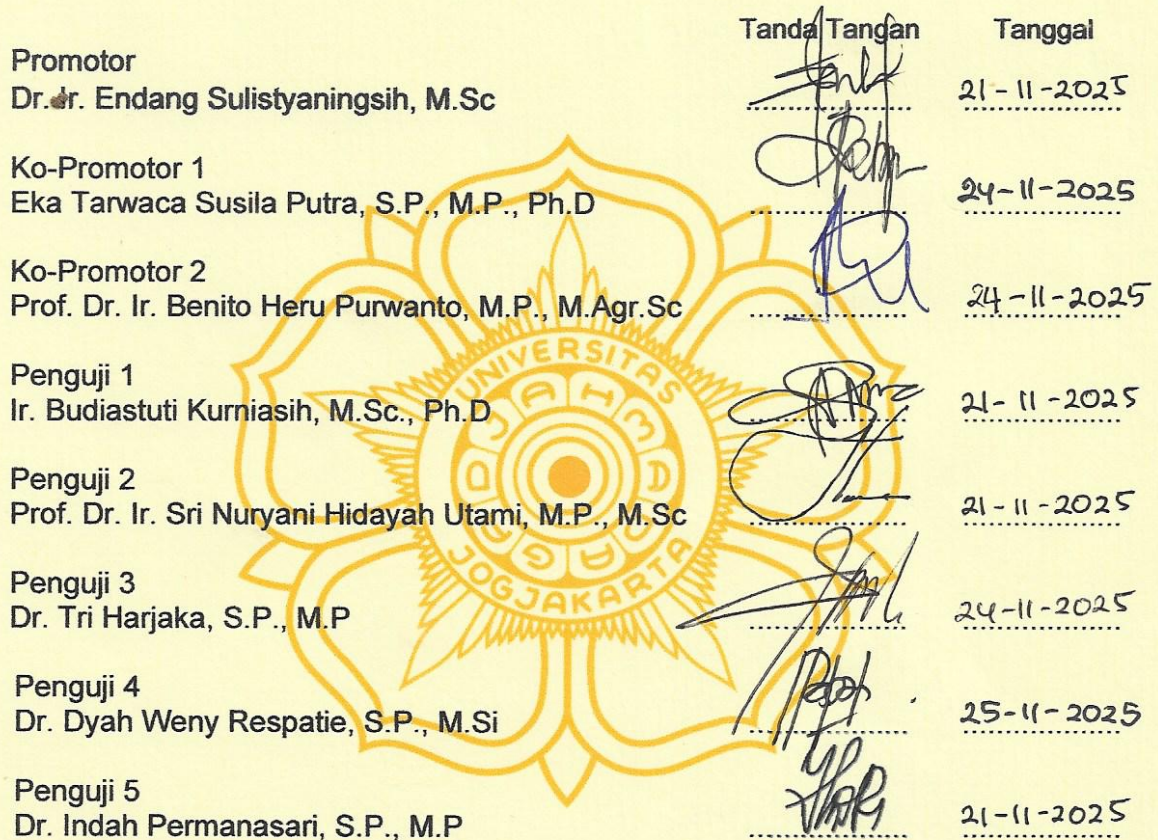 Tanda Tangan Tanggal
Promotor
Dr. Ir. Endang Sulistyaningsih, M.Sc 21-11-2025
Ko-Promotor 1
Eka Tarwaca Susila Putra, S.P., M.P., Ph.D 24-11-2025
Ko-Promotor 2
Prof. Dr. Ir. Benito Heru Purwanto, M.P., M.Agr.Sc 24-11-2025
Penguji 1
Ir. Budiastuti Kurniasih, M.Sc., Ph.D 21-11-2025
Penguji 2
Prof. Dr. Ir. Sri Nuryani Hidayah Utami, M.P., M.Sc 21-11-2025
Penguji 3
Dr. Tri Harjaka, S.P., M.P 24-11-2025
Penguji 4
Dr. Dyah Weny Respatie, S.P., M.Si 25-11-2025
Penguji 5
Dr. Indah Permanasari, S.P., M.P 21-11-2025
UNIVERSITAS
GADJAH MADA
JOGJAKARTA